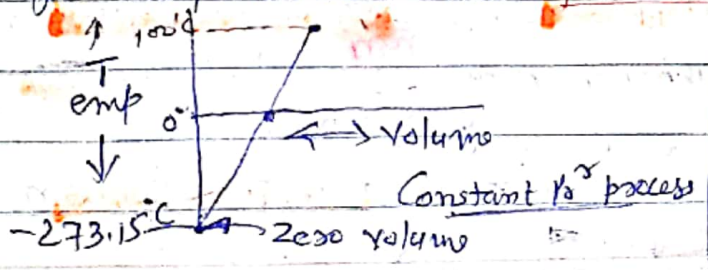 100°C
Temp
0°
Volume
Constant pr process
-273.15°C
Zero volume